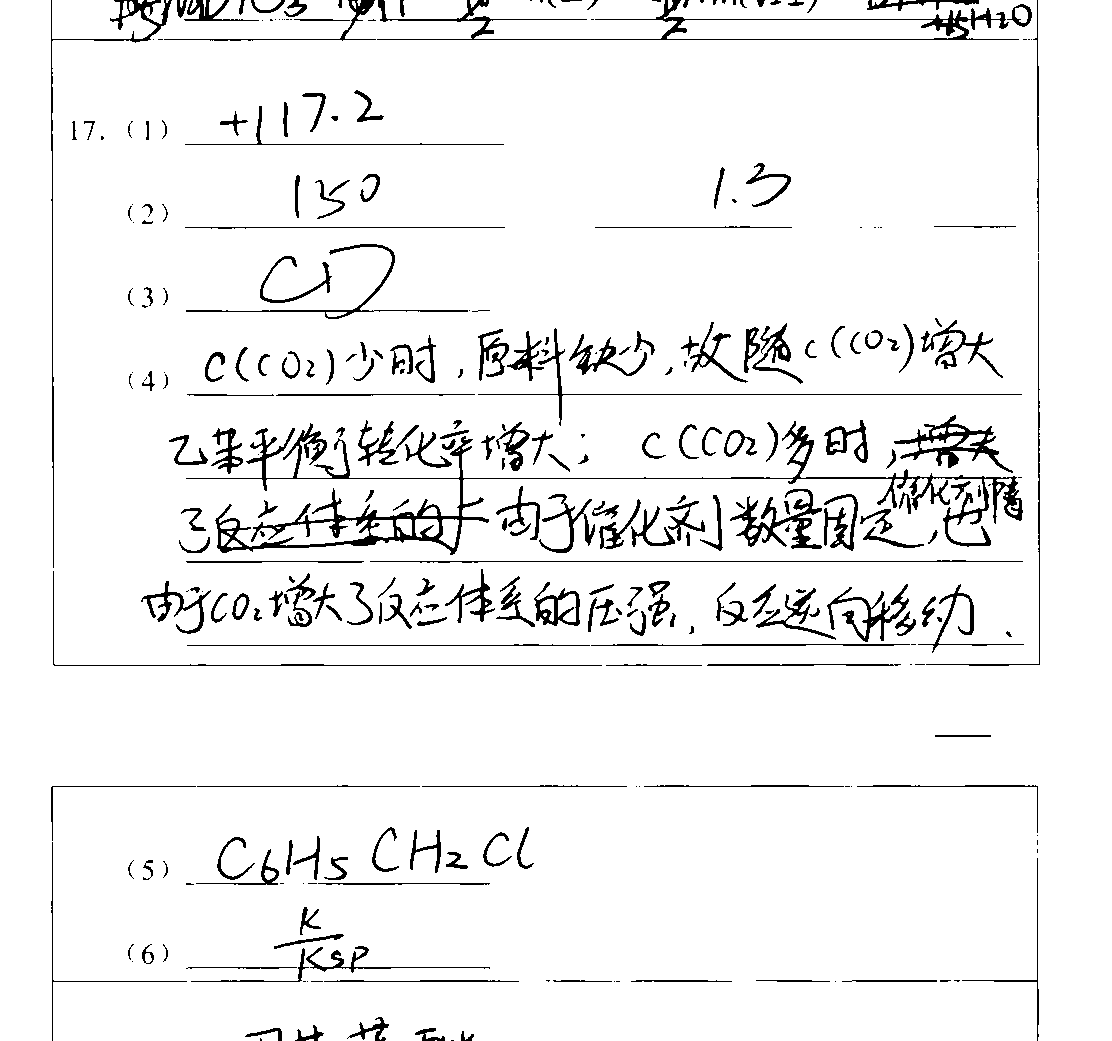 17. (1) +117.2
(2) 150 1.3
(3) CD
(4) C(CO2)少时,原料缺少,故随C(CO2)增大
乙苯平衡转化率增大; C(CO2)多时,
由于催化剂数量固定,也
由于CO2增大了反应体系的压强,反应逆向移动.
(5) C6H5CH2Cl
(6) K/Ksp